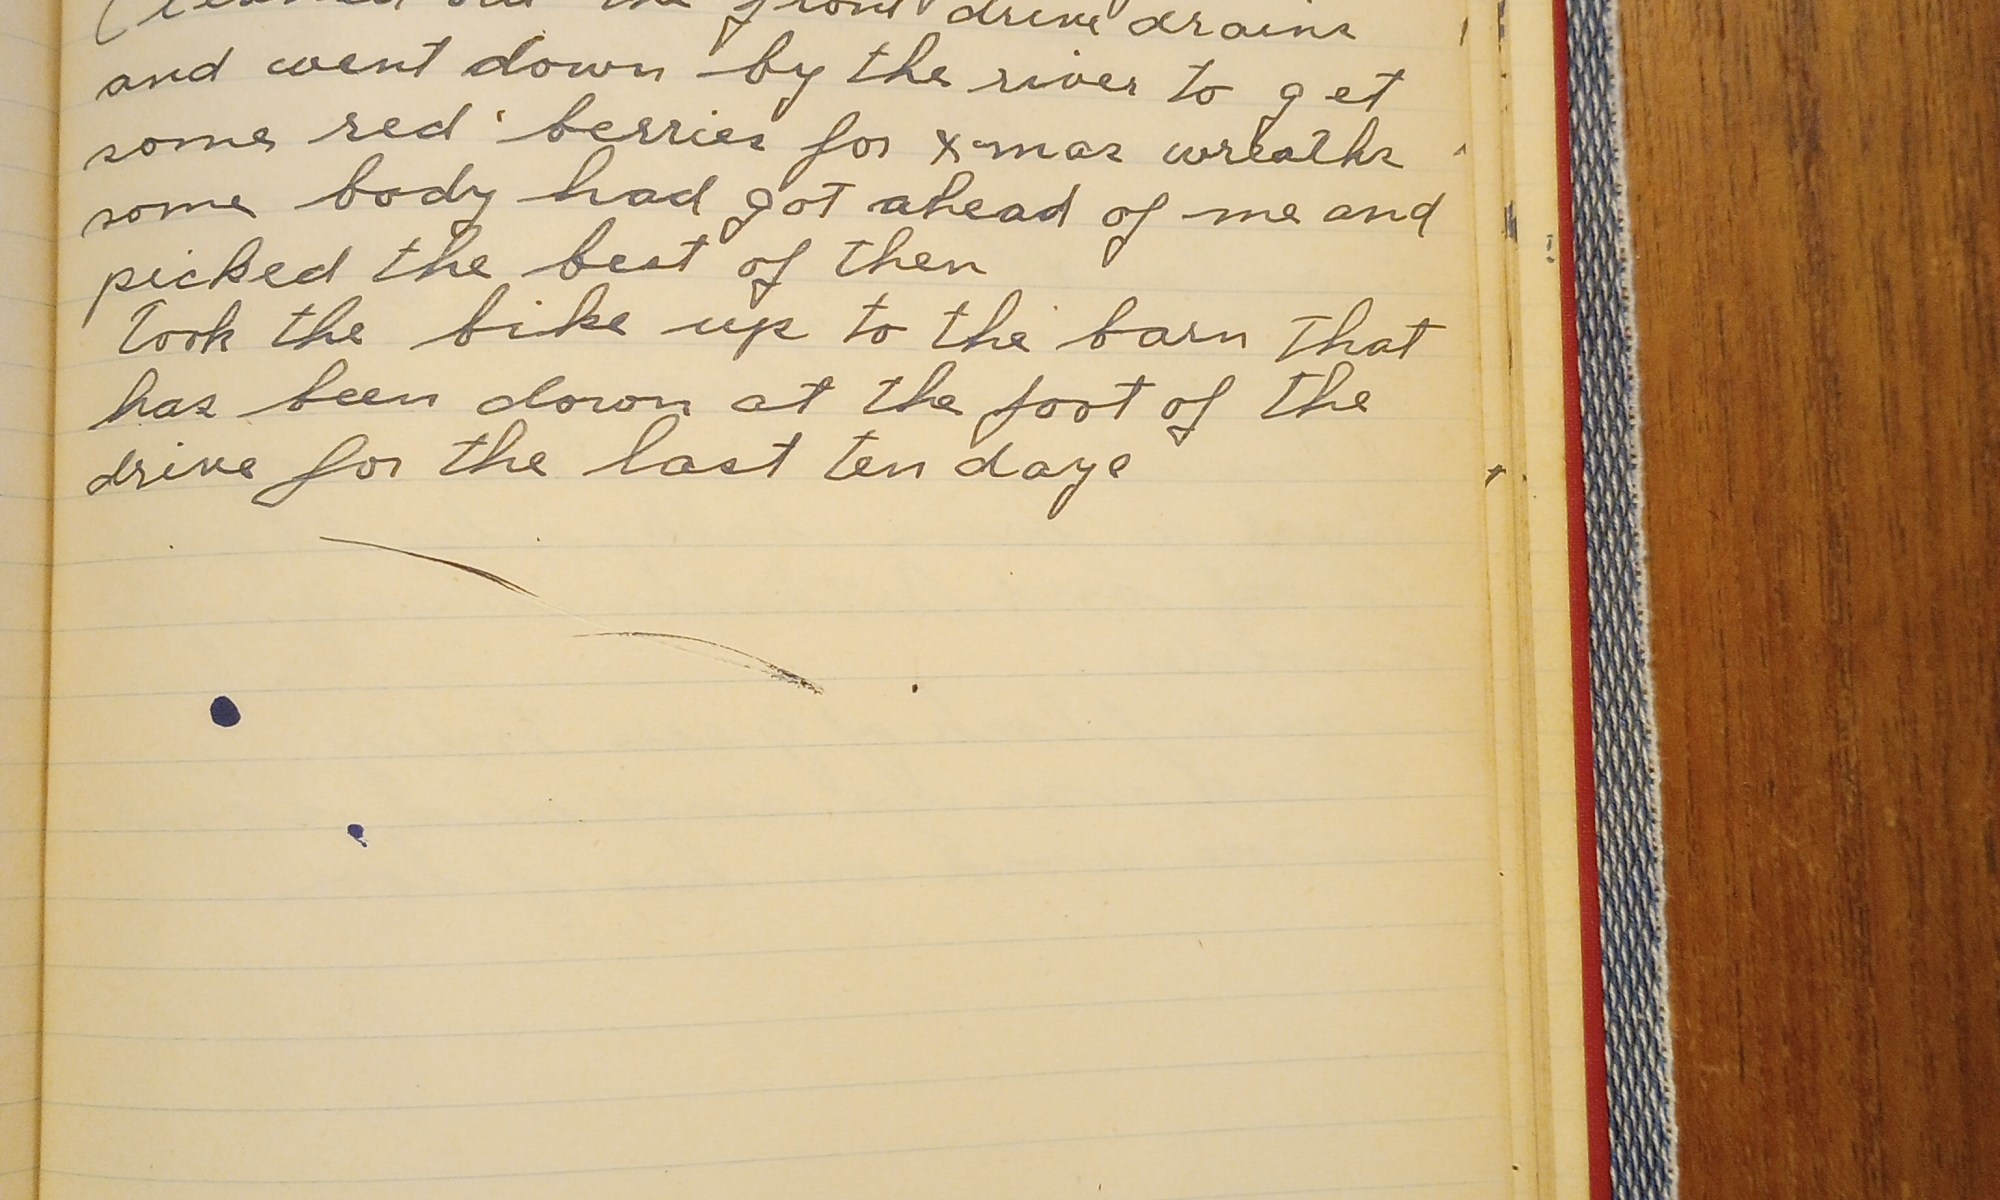 Cleaned out the front drive drains
and went down by the river to get
some red berries for x-mas wreaths
some body had got ahead of me and
picked the best of then
Took the bike up to the barn that
has been down at the foot of the
drive for the last ten days